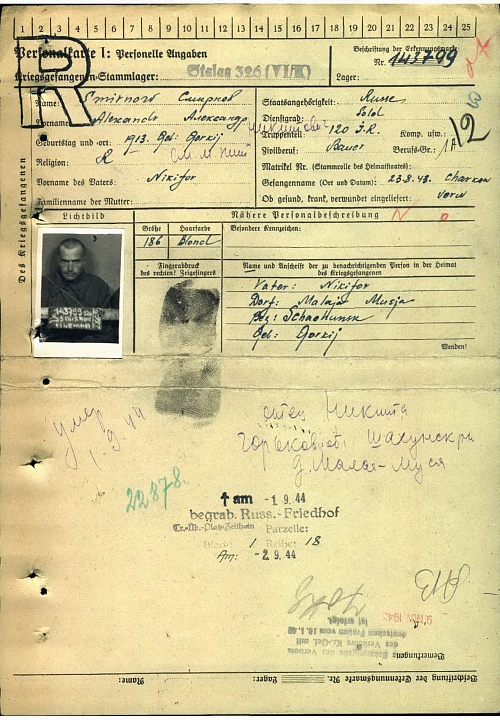 1 2 3 4 5 6 7 8 9 10 11 12 13 14 15 16 17 18 19 20 21 22 23 24 25
Personalkarte I: Personelle Angaben
Beschriftung der Erkennungsmarke
Nr. 143799
Kriegsgefangenen-Stammlager: Stalag 326 (VI/K)
Lager:
R
Des Kriegsgefangenen
Name: Smirnow Смирнов
Staatsangehörigkeit: Russe
Vorname: Alexandr Александр
Dienstgrad: Sold
Truppenteil: 120 J.R. Komp. usw.:
12
Geburtstag und -ort: 1913. Geb: Gorkij
Zivilberuf: Bauer Berufs-Gr.: 1A
Religion: R
Matrikel Nr. (Stammrolle des Heimatstaates):
Vorname des Vaters: Nikifor
Gefangennahme (Ort und Datum): 23.8.43. Charkow
Familienname der Mutter:
Ob gesund, krank, verwundet eingeliefert: verw
Lichtbild
Nähere Personalbeschreibung
Größe Haarfarbe Besondere Kennzeichen:
186 blond
Fingerabdruck
des rechten! Zeigefingers
Name und Anschrift der zu benachrichtigenden Person in der Heimat
des Kriegsgefangenen
Vater: Nikifor
Dorf: Malaja Musja
Bez: Schachunsk
Geb: Gorkij
Wenden!
143799
умер
1.9.44
отец Никита
Шахунский
д. Малая-Муся
22878.
† am - 1. 9. 44
begrab. Russ.-Friedhof
Tr.-Üb.-Platz Zeithain Parzelle:
Block: 1 Reihe: 18
Am: - 2. 9. 44
Bemerkungen:
Bekanntgabe des Verbots
des Verkehrs Kr.-Gef. mit
deutschen Frauen vom 10.1.40
ist erfolgt.
Beschriftung der Erkennungsmarke Nr. Lager: Name: